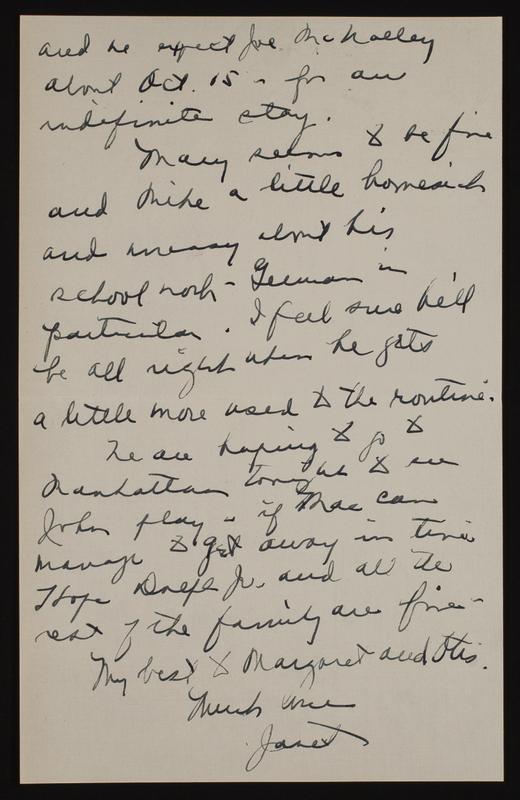 and we expect Joe McNalley
about Oct. 15 - for an
indefinite stay.
Mary seems to be fine
and Mike a little homesick
and uneasy about his
school work - German in
particular. I feel sure he'll
be all right when he gets
a little more used to the routine.
We are hoping to go to
Manhattan tonight to see
John play - if Mac can
manage to get away in time
Hope Ralph Jr. and all the
rest of the family are fine -
My best to Margaret and Otis.
Much love
Janet